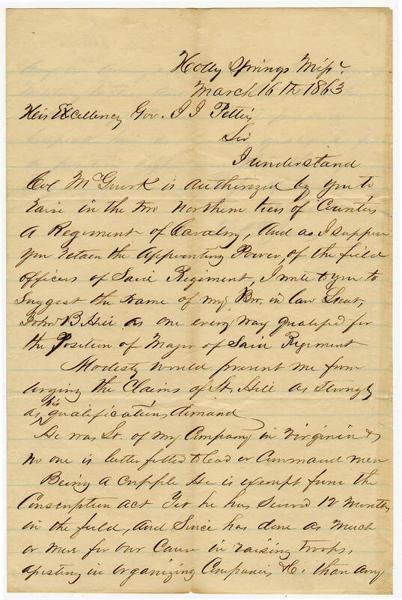 Holly Springs Miss.
March 16th 1863
His Excellency Gov. J J Pettus
Sir
I understand
Col McGuirk is authorized by you to
raise in the two Northern tiers of Counties
a Regiment of Cavalry, And as I suppose
you retain the Appointing Power, of the field
officers of Said Regiment, I write to you to
suggest the name of my Bro. in law Lieut,
John B. Hill as one every way qualified for
the Position of Major of Said Regiment
Modesty would prevent me from
urging the Claims of Lt. Hill as strongly
as his qualifications demand
He was Lt. of my Company in Virginia &
no one is better fitted to lead or Command men
Being a cripple He is exempt from the
Conscription Act Yet he has Served 12 months
in the field, and Since has done as much
or more for our Cause in raising troops,
assisting in organizing Companies &c. than any